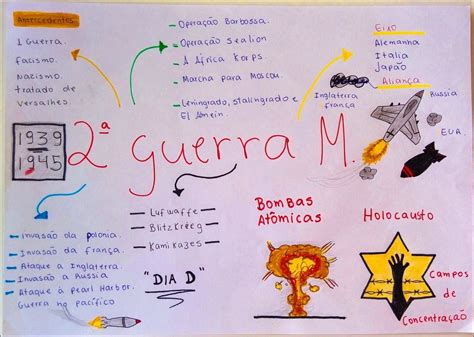 Antecedentes
1 Guerra.
Facismo.
Nazismo.
tratado de
Versalhes
- Operação Barbossa.
- Operação Sealion
- A África Korps.
- Marcha para Moscou.
- Leningrado, stalingrado e
El Alamein.
Eixo
Alemanha
Italia
Japão
Aliança
Inglaterra
frança
Russia
EUA
1939
1945
2ª Guerra M.
- Invasão da polonia.
- Invasão da frança.
- Ataque a Inglaterra.
- Invasão a Russia
- Ataque à pearl Harbor.
Guerra no pacífico
- Luftwaffe
- Blitzkrieg
- Kamikazes
"DIA D"
Bombas
Atômicas
Holocausto
Campos
de
Concentração